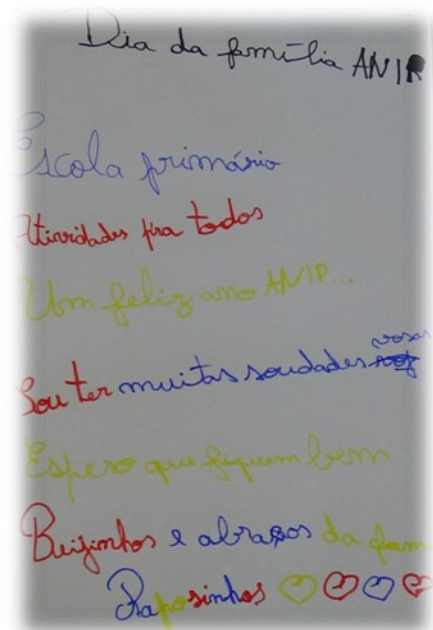 Dia da família ANIP
Escola primário
Atividades pra todos
Um feliz ano ANIP...
Sou ter muitas soudades vosas
Espero que fiquem bem
Beijinhos e abraços da fam
Raposinhos